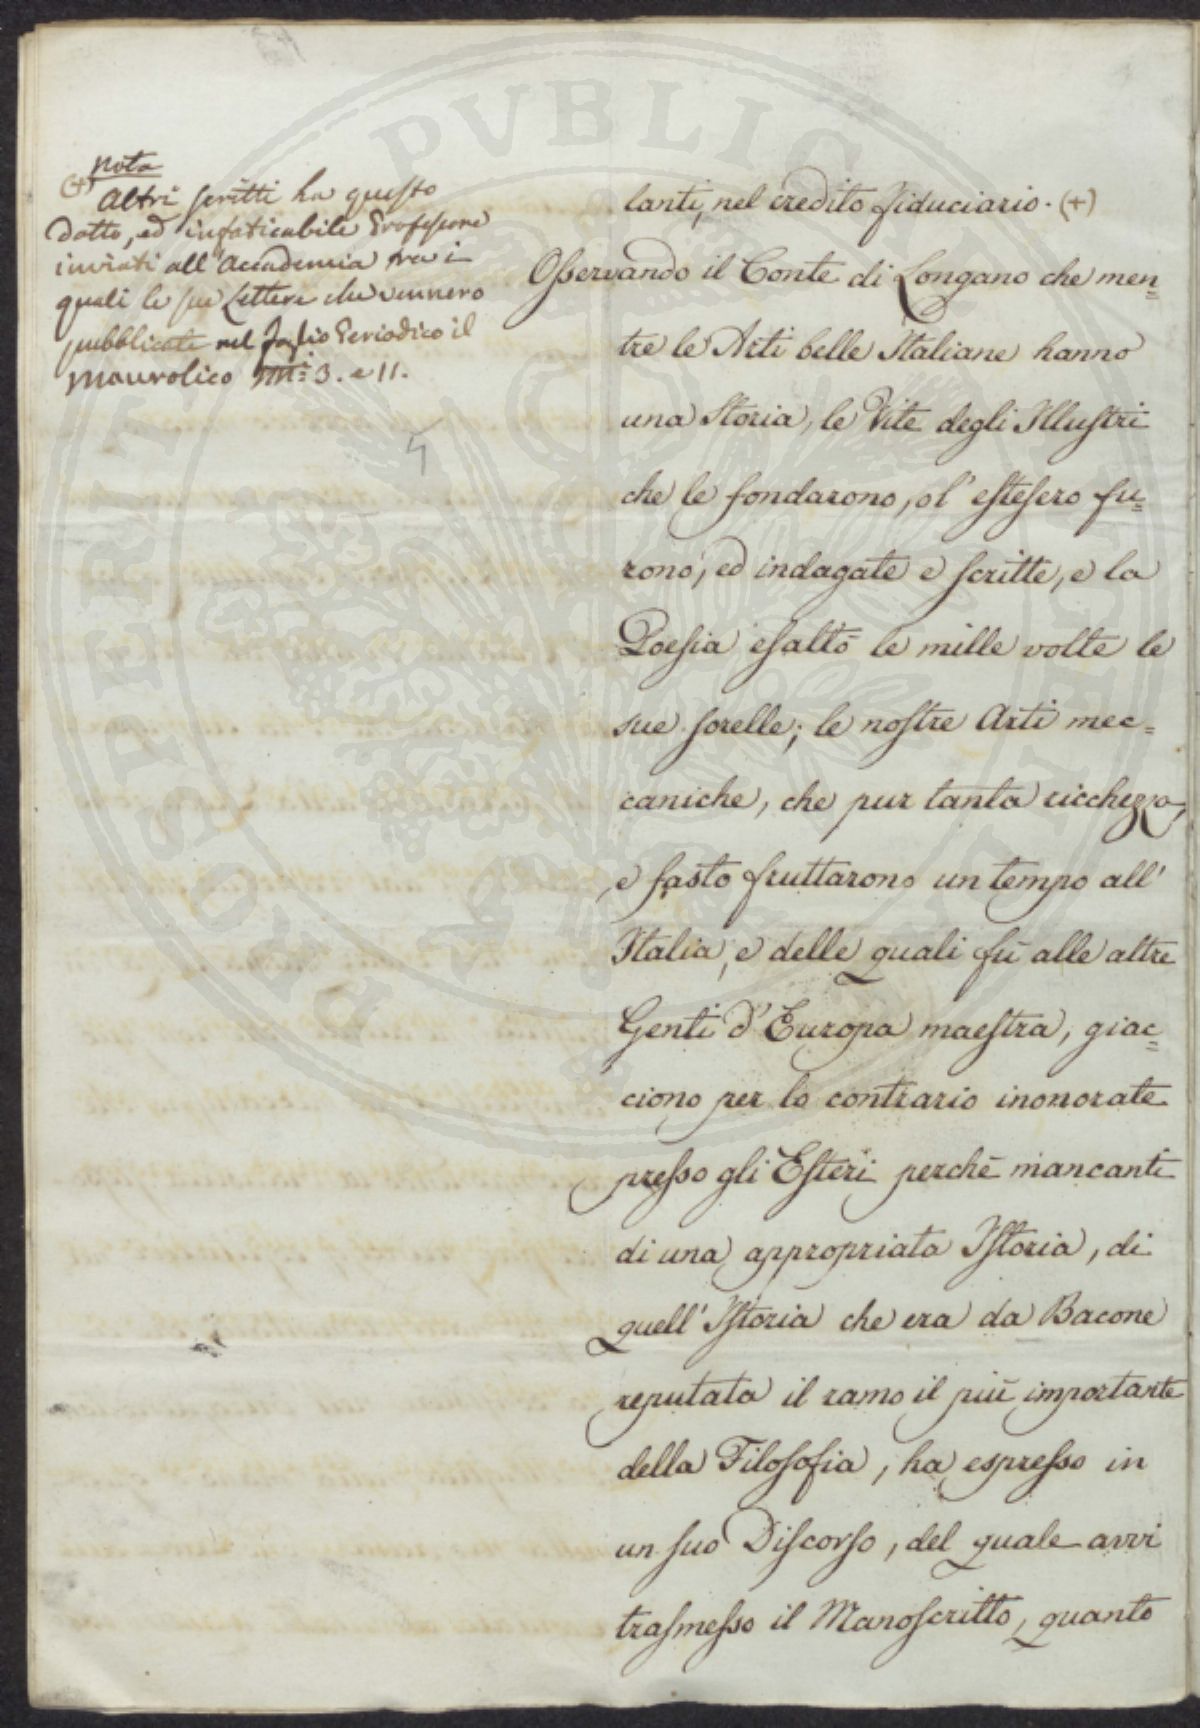 nota
(+) Altri scritti ha questo
dotto, ed infaticabile Professore
inviati all'Accademia tra i
quali le sue Lettere che vennero
pubblicate nel foglio Periodico il
Maurolico Ni: 3. e 11.
lanti, nel credito fiduciario. (+)
Osservando il Conte di Longano che men=
tre le Arti belle Italiane hanno
una Storia, le Vite degli Illustri
che le fondarono, o l'estesero fu=
rono, ed indagate e scritte, e la
Poesia esaltò le mille volte le
sue sorelle; le nostre Arti mec=
caniche, che pur tanta ricchezza,
e fasto fruttarono un tempo all'
Italia, e delle quali fù alle altre
Genti d'Europa maestra, giac=
ciono per lo contrario inonorate
presso gli Esteri perchè mancanti
di una appropriata Istoria, di
quell'Istoria che era da Bacone
reputata il ramo il più importante
della Filosofia, ha espresso in
un suo Discorso, del quale avvi
trasmesso il Manoscritto, quanto
PVBLIC
PROSPERITATI